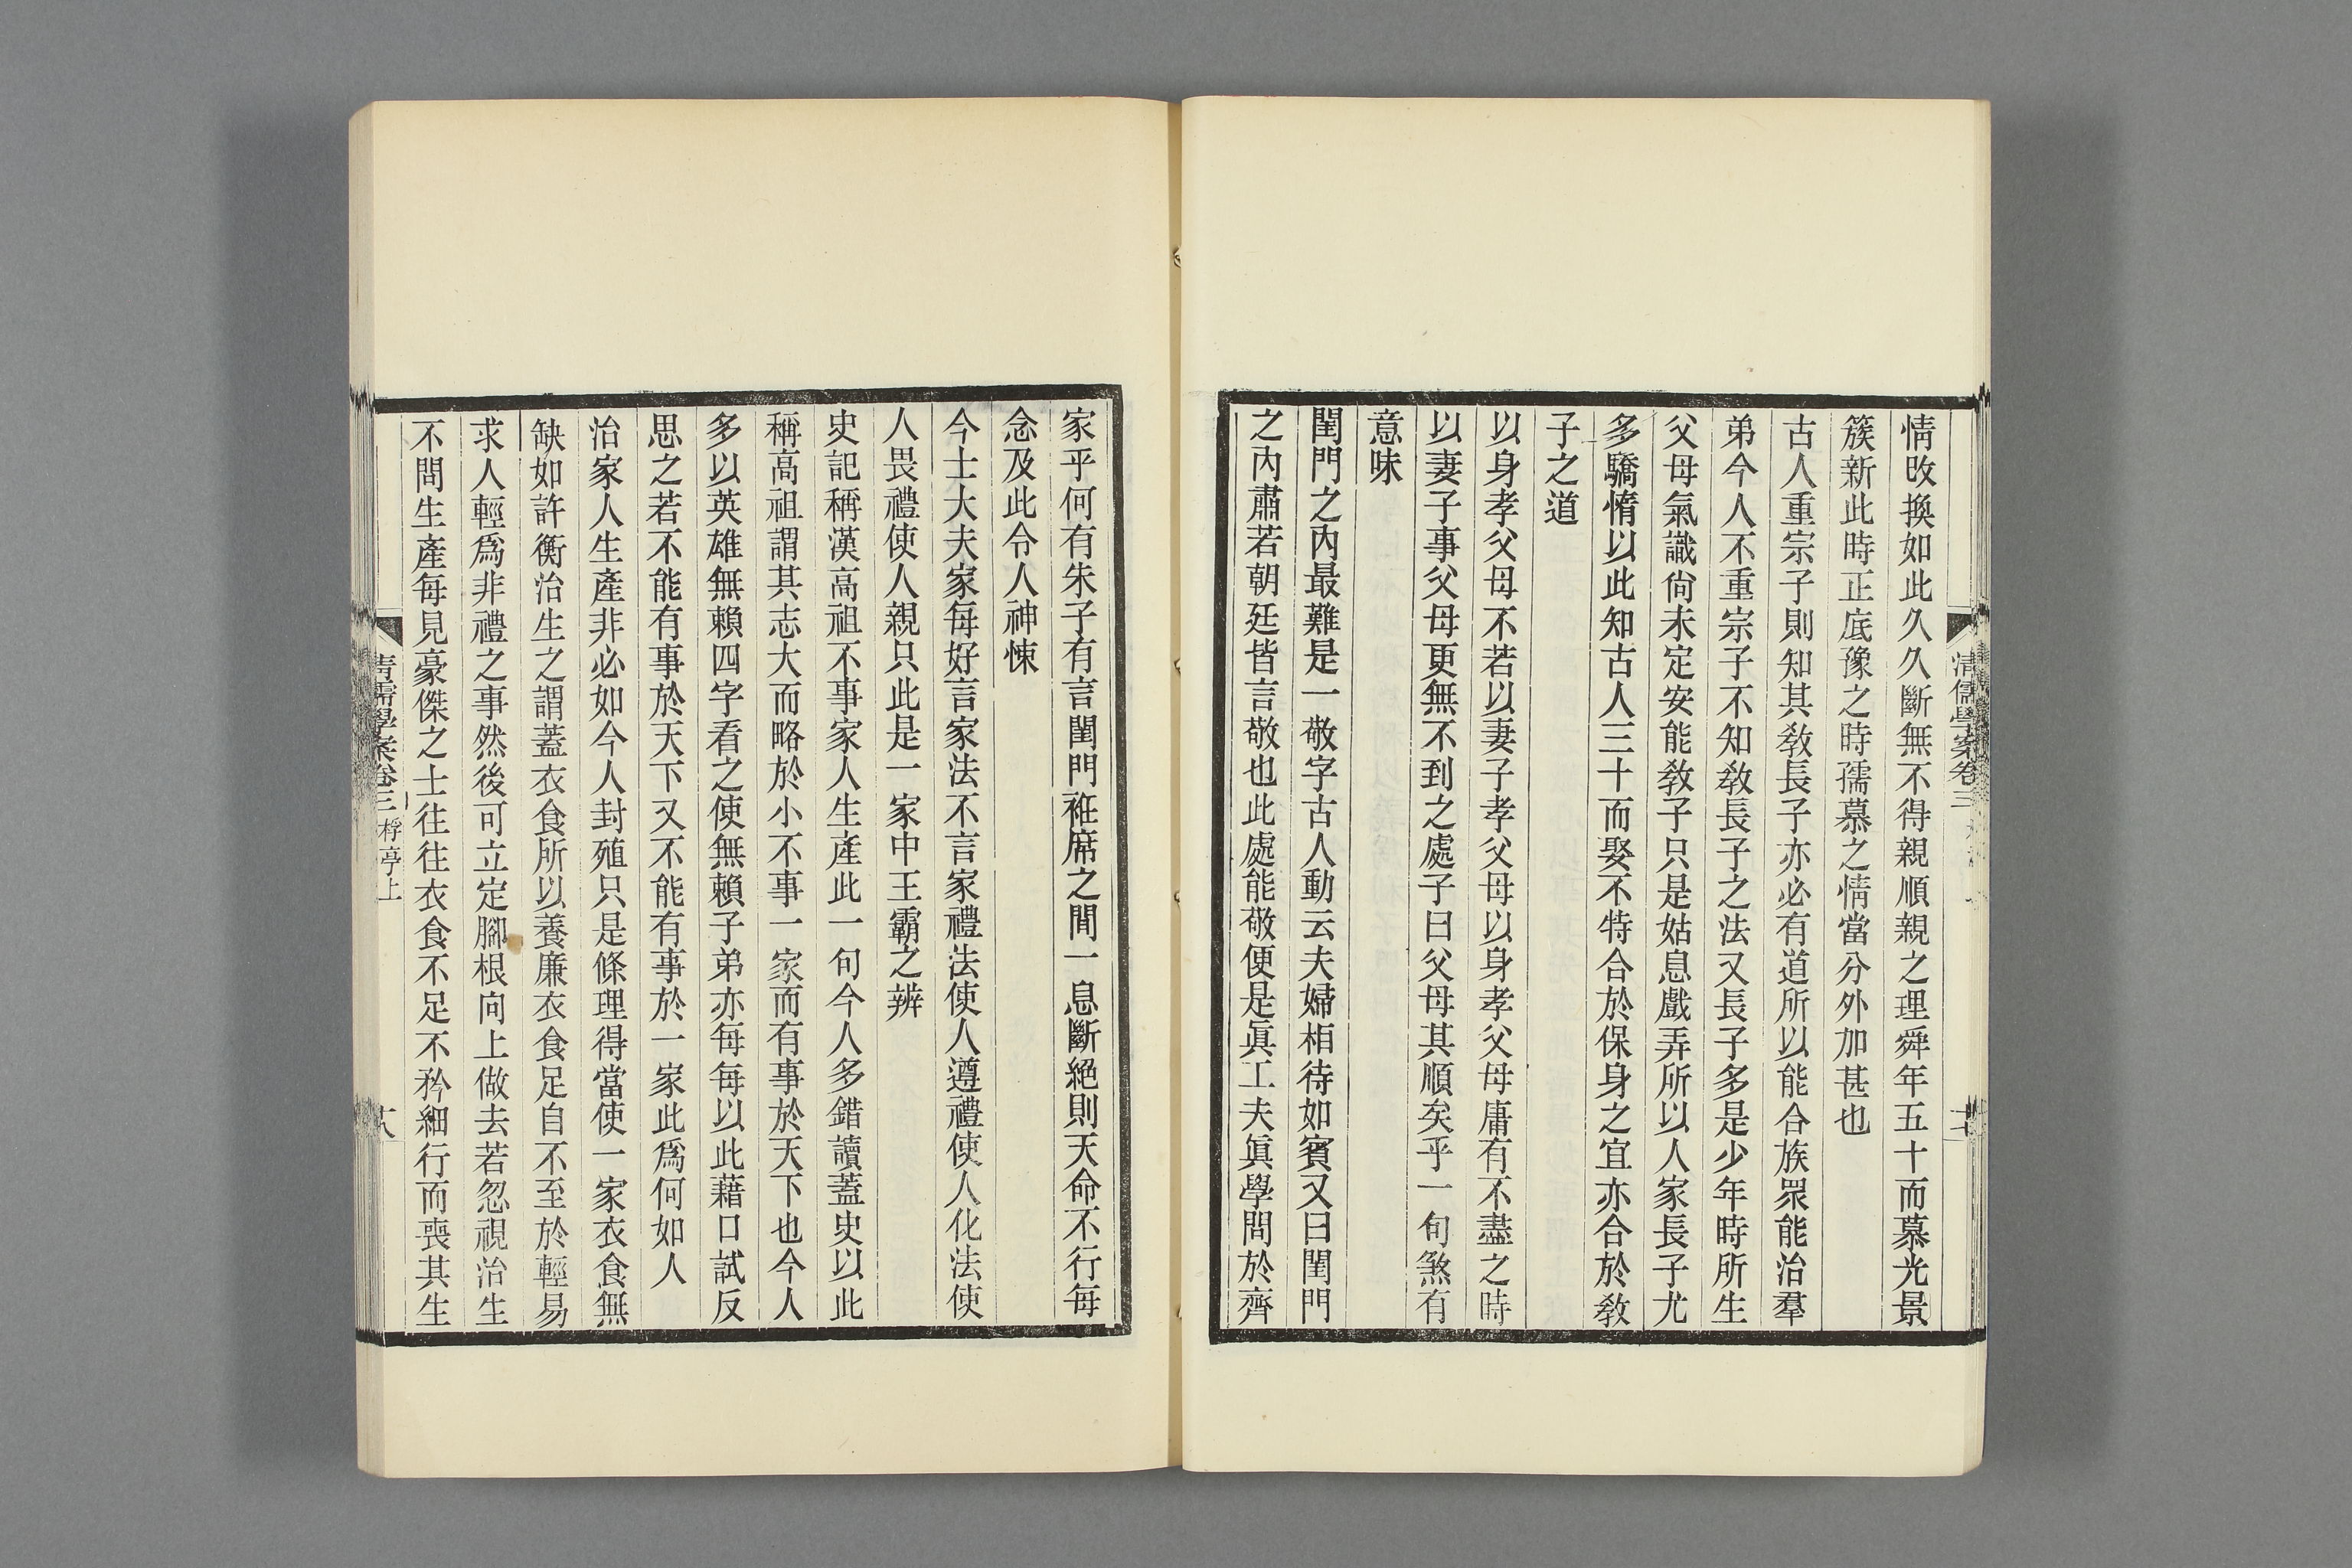 情改換如此久久斷無不得親順親之理舜年五十而慕光景
簇新此時正底豫之時孺慕之情當分外加甚也
古人重宗子則知其敎長子亦必有道所以能合族眾能治羣
弟今人不重宗子不知敎長子之法又長子多是少年時所生
父母氣識尙未定安能敎子只是姑息戲弄所以人家長子尤
多驕惰以此知古人三十而娶不特合於保身之宜亦合於敎
子之道
以身孝父母不若以妻子孝父母以身孝父母庸有不盡之時
以妻子事父母更無不到之處子曰父母其順矣乎一句煞有
意味
閨門之內最難是一敬字古人動云夫婦相待如賓又曰閨門
之內肅若朝廷皆言敬也此處能敬便是眞工夫眞學問於齊
清儒學案卷三
十七
家乎何有朱子有言閨門袵席之間一息斷絕則天命不行每
念及此令人神悚
今士大夫家每好言家法不言家禮法使人遵禮使人化法使
人畏禮使人親只此是一家中王霸之辨
史記稱漢高祖不事家人生產此一句今人多錯讀蓋史以此
稱高祖謂其志大而略於小不事一家而有事於天下也今人
多以英雄無賴四字看之使無賴子弟亦每每以此藉口試反
思之若不能有事於天下又不能有事於一家此爲何如人
治家人生產非必如今人封殖只是條理得當使一家衣食無
缺如許衡治生之謂蓋衣食所以養廉衣食足自不至於輕易
求人輕爲非禮之事然後可立定腳根向上做去若忽視治生
不問生產每見豪傑之士往往衣食不足不矜細行而喪其生
清儒學案卷三 桴亭上
十八